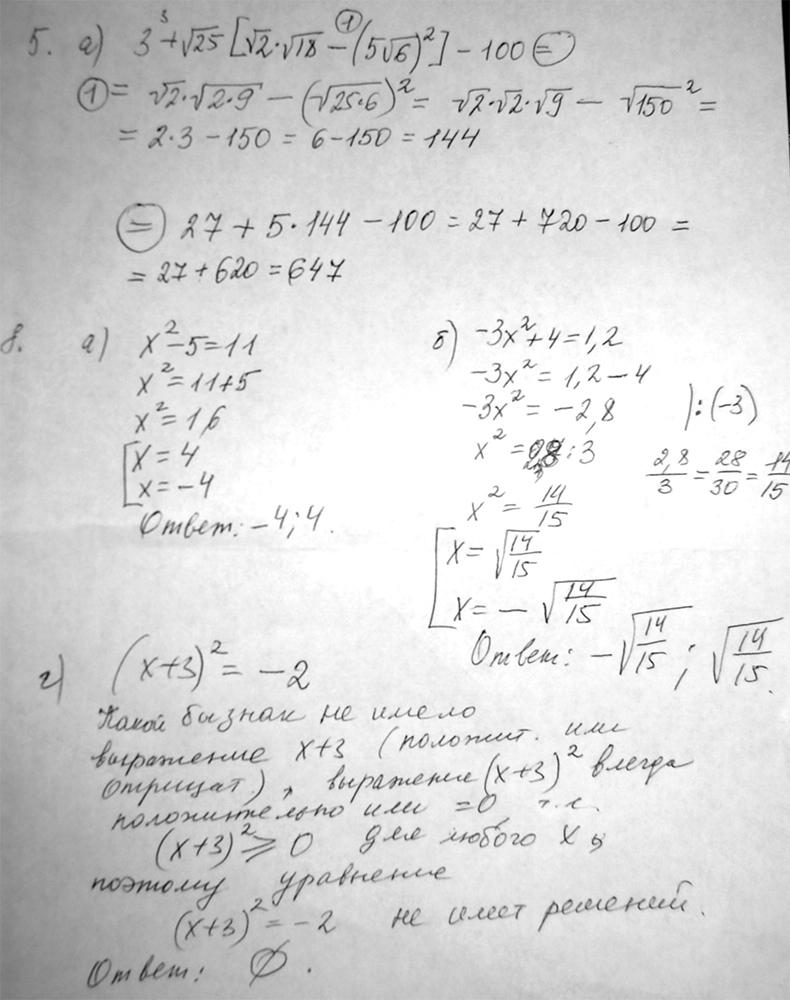 5. а) 3³+√25 [√2·√18 − (5√6)²] − 100 =
① = √2·√2·9 − (√25·6)² = √2·√2·√9 − √150² =
= 2·3 − 150 = 6 − 150 = 144
= 27 + 5·144 − 100 = 27 + 720 − 100 =
= 27 + 620 = 647
8. а) x² − 5 = 11
x² = 11 + 5
x² = 16
x = 4
x = −4
Ответ: −4; 4.
б) −3x² + 4 = 1,2
−3x² = 1,2 − 4
−3x² = −2,8 ) : (−3)
x² = 2,8 : 3
2,8/3 = 28/30 = 14/15
x² = 14/15
x = √14/15
x = − √14/15
Ответ: −√14/15 ; √14/15.
г) (x+3)² = −2
Какой бы знак не имело
выражение x+3 (положит. или
отрицат.), выражение (x+3)² всегда
положительно или = 0, т.е.
(x+3)² ⩾ 0 для любого x,
поэтому уравнение
(x+3)² = −2 не имеет решений.
Ответ: ∅.